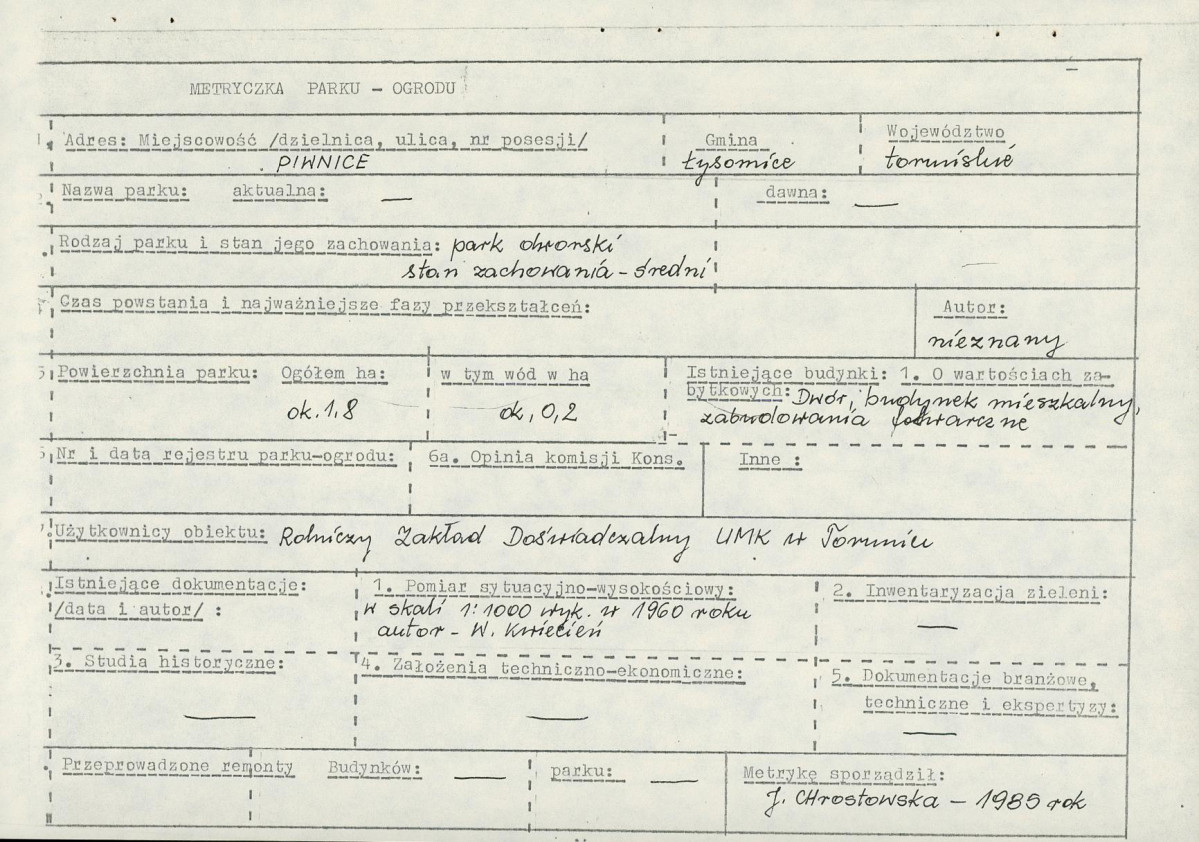 METRYCZKA PARKU - OGRODU
1. Adres: Miejscowość /dzielnica, ulica, nr posesji/
PIWNICE
Gmina
Łysomice
Województwo
toruńskie
Nazwa parku: aktualna: —
dawna: —
Rodzaj parku i stan jego zachowania: park dworski
stan zachowania - średni
Czas powstania i najważniejsze fazy przekształceń:
Autor:
nieznany
5. Powierzchnia parku: Ogółem ha:
ok. 1,8
w tym wód w ha
ok, 0,2
Istniejące budynki: 1. O wartościach za-
bytkowych: Dwór, budynek mieszkalny,
zabudowania folwarczne
Nr i data rejestru parku-ogrodu:
6a. Opinia komisji Kons.
Inne :
Użytkownicy obiektu: Rolniczy Zakład Doświadczalny UMK w Toruniu
Istniejące dokumentacje:
/data i autor/ :
1. Pomiar sytuacyjno-wysokościowy:
w skali 1:1000 wyk. w 1960 roku
autor - W. Kwiecień
2. Inwentaryzacja zieleni:
—
3. Studia historyczne:
—
4. Założenia techniczno-ekonomiczne:
—
5. Dokumentacje branżowe,
techniczne i ekspertyzy:
—
Przeprowadzone remonty Budynków: —
parku: —
Metrykę sporządził:
J. CHrostowska - 1985 rok